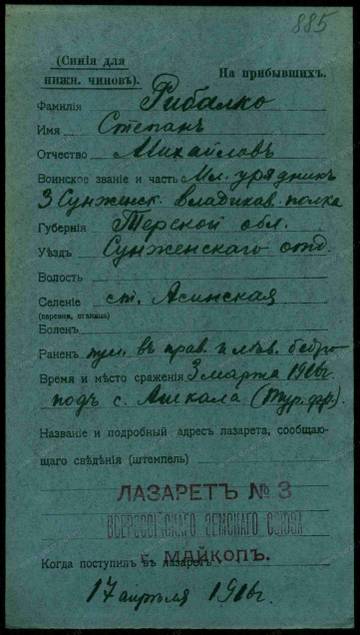 885
(Синія для
нижн. чиновъ).
На прибывшихъ.
Фамилія Рибалко
Имя Степанъ
Отчество Михайловъ
Воинское званіе и часть Мл. урядникъ
3 Сунженск. владикав. полка
Губернія Терской обл.
Уѣздъ Сунженскаго отд.
Волость
Селеніе ст. Асинская
(деревня, станица)
Боленъ
Раненъ пул. въ прав. и лѣв. бедро
Время и мѣсто сраженія 3 марта 1916г.
подъ с. Ашкала (Тур. фр.)
Названіе и подробный адресъ лазарета, сообщаю-
щаго свѣдѣнія (штемпель)
ЛАЗАРЕТЪ № 3
ВСЕРОССІЙСКАГО ЗЕМСКАГО СОЮЗА
г. МАЙКОПЪ.
Когда поступилъ въ лазаретъ
17 апрѣля 1916г.